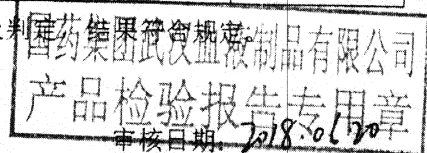 判定，结果符合规定。
国药集团武汉血液制品有限公司
产品检验报告专用章
审核日期：2018.06.20